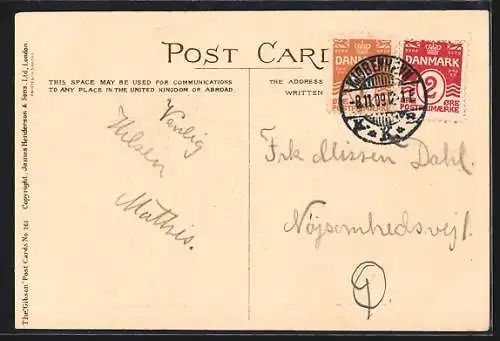 POST CARD
THIS SPACE MAY BE USED FOR COMMUNICATIONS
TO ANY PLACE IN THE UNITED KINGDOM OR ABROAD.
THE ADDRESS
WRITTEN
DANMARK
DANMARK
2
ØRE
KJØBENHAVN
8.11.09
K
Venlig
Hilsen
Mathis.
Frk Missen Dahl.
Nöjsomhedsvej
The "Gibson" Post Cards No. 262 Copyright. James Henderson & Sons, Ltd. London.